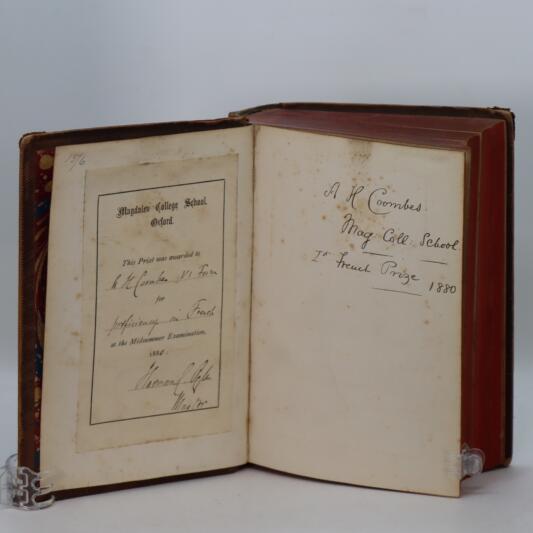 15/6
Magdalen College School,
Oxford.
This Prize was awarded to
A H Coombes VI Form
for
proficiency in French
at the Midsummer Examination,
1880.
Master
A H Coombes.
Mag. Coll. School
French Prize 1880